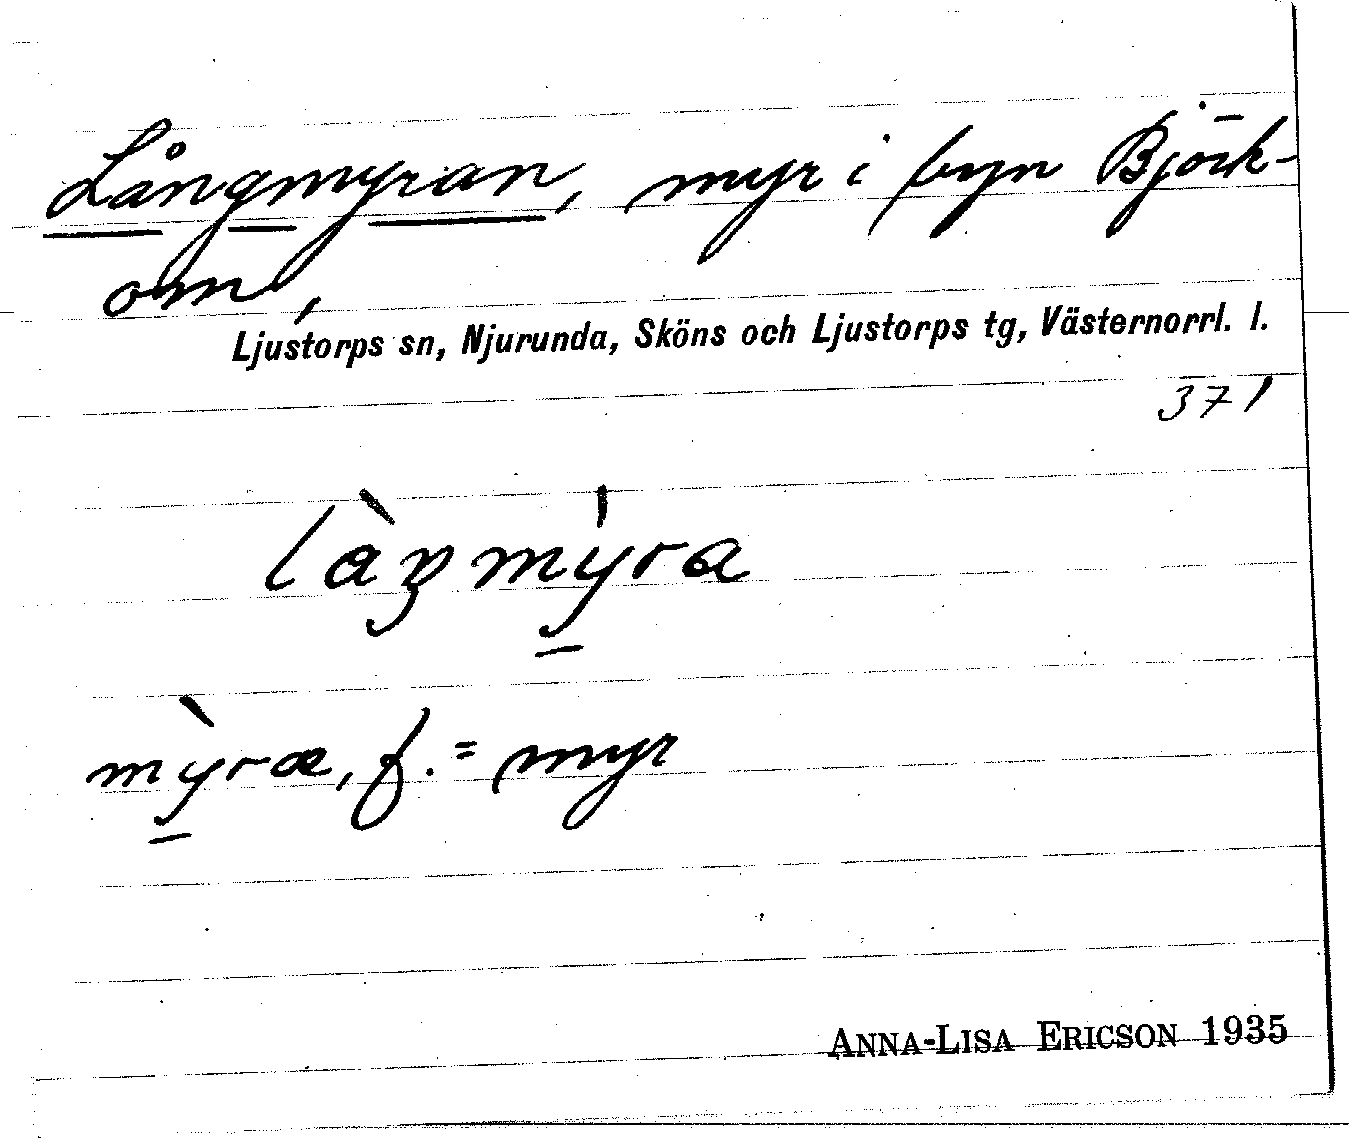 Långmyran, myr i byn Björk-
om,
Ljustorps sn, Njurunda, Sköns och Ljustorps tg, Västernorrl. l.
371
làŋmy̠̍ra
mỳ̠ræ, f. = myr
ANNA-LISA ERICSON 1935